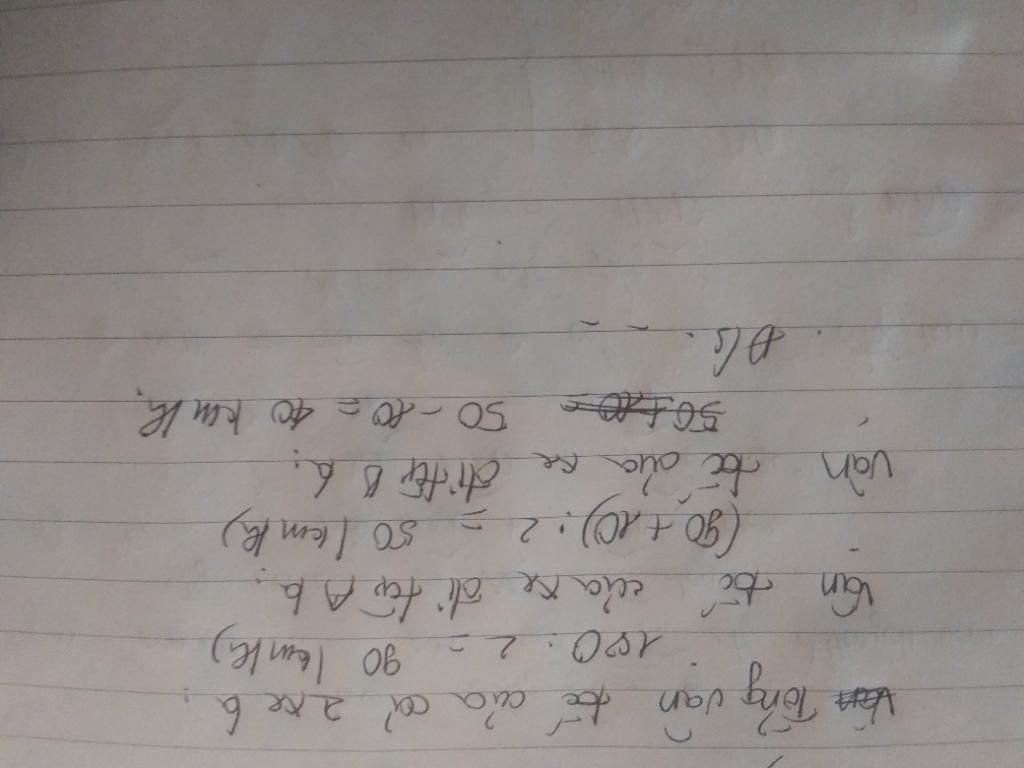 Tổng vận tốc của cả 2 xe là:
180 : 2 = 90 (km/h)
Vận tốc của xe đi từ A là:
(90 + 10) : 2 = 50 (km/h)
Vận tốc của xe đi từ B là:
50 - 10 = 40 km/h.
Đ/s: - -